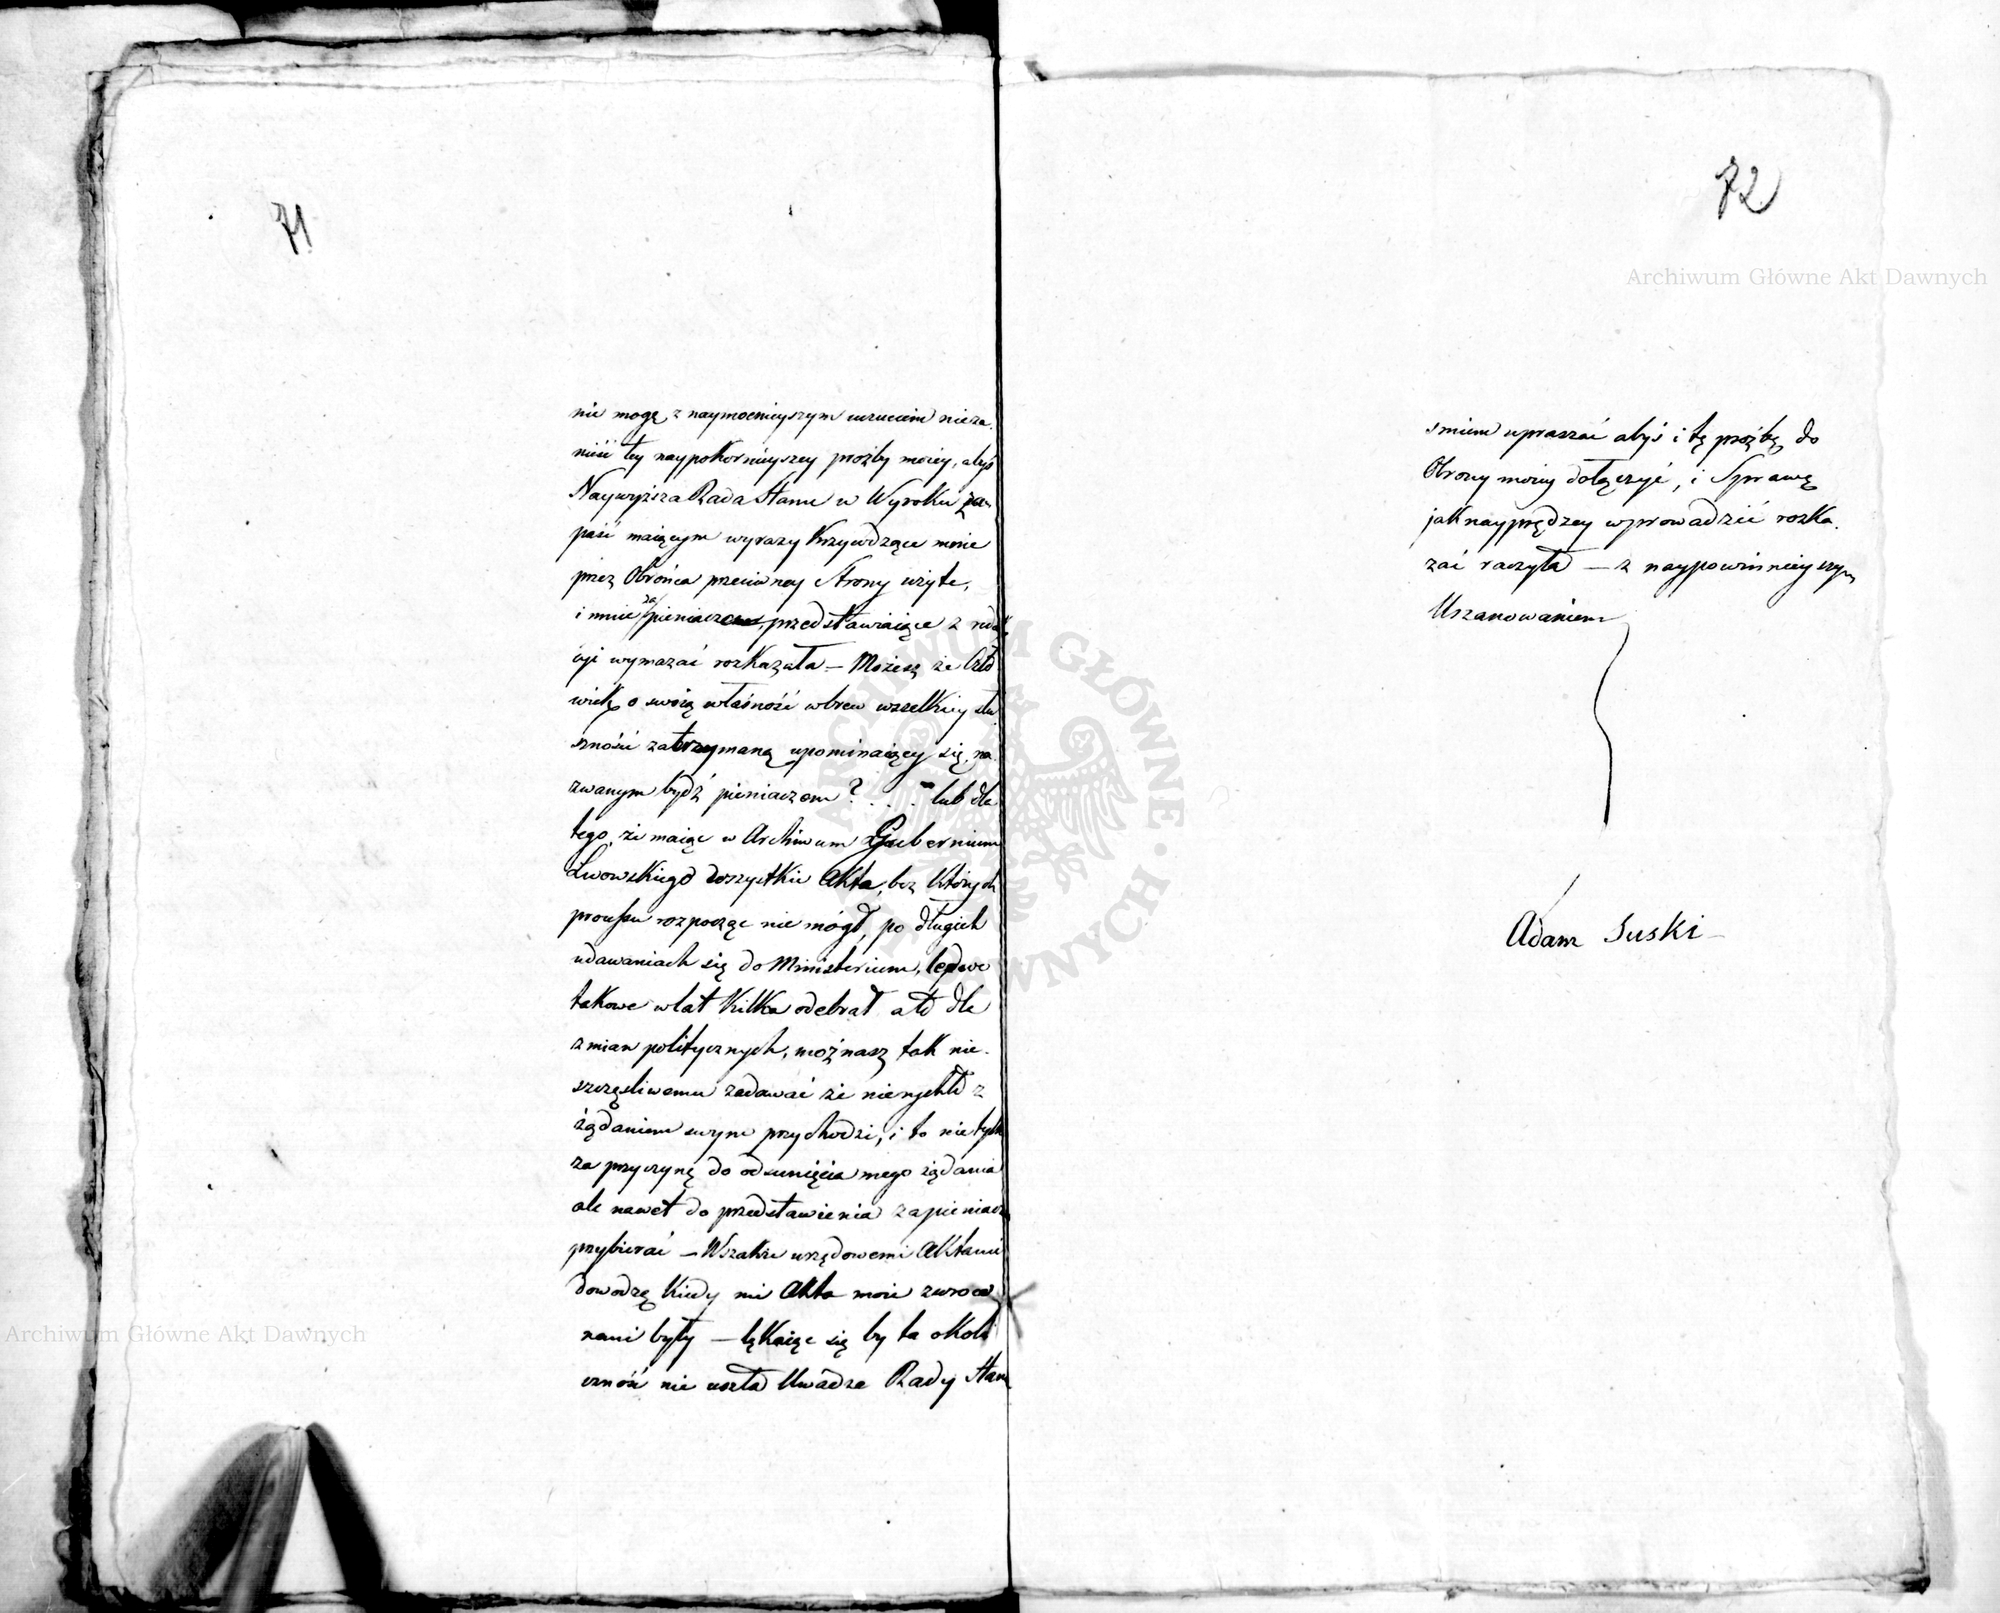 71
nie mogę z naymocnieyszym uczuciem nieza.
nieść tey naypokornieyszey proźby moiey, abyś
Naywyższa Rada Stanu w Wyroku za=
paść maiącym wyrazy krzywdzące mnie
przez Obrońca przeciwney Strony użyte,
i mnie za pieniacza przedstawiaiące z reda
cyi wymazać rozkazała — Możesz że Czło
wiek o swoią własność wbrew wszelkiey słu
szności zatrzymaną upominaiący się, na.
zwanym bydź pieniaczem? . . . . lub dla
tego, że maiąc w Archiwum Gubernium
Lwowskiego wszystkie Akta, bez których
processu rozpocząc nie mógł, po długich
udawaniach się do Ministerium, ledwo
takowe w lat kilka odebrał ato dla
zmian politycznych, możnasz tak nie.
szczęśliwemu zadawać że nierychło z
żądaniem swym przychodzi, i to nie tylko
za przyczynę do odsunięcia mego żądania
ale nawet do przedstawienia za pieniacza
przybierać — Wszakże urzędowemi Aktami
dowodzę kiedy mi Akta moie zwroco
nemi były — lękaiąc się by ta okoli
czność nie uszła Uwadze Rady Stanu
72
Archiwum Główne Akt Dawnych
smiem upraszać abyś i tę proźbę do
Obrony moiey dołączyć, i Sprawę
jaknayprędzey wprowadzić rozka.
zać raczyła — z naypowinnieyszym
Uszanowaniem
Adam Suski
Archiwum Główne Akt Dawnych